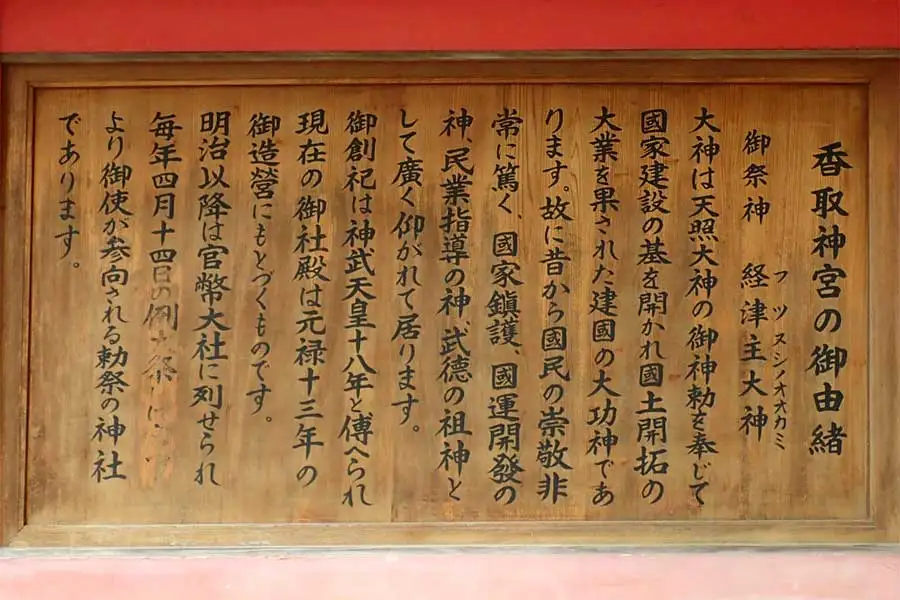 香取神宮の御由緒
御祭神 経津主大神
フツヌシノオオカミ
大神は天照大神の御神勅を奉じて
國家建設の基を開かれ國土開拓の
大業を果された建國の大功神であ
ります。故に昔から國民の崇敬非
常に篤く、國家鎭護、國運開發の
神、民業指導の神武徳の祖神と
して廣く仰がれて居ります。
御創祀は神武天皇十八年と傳へられ
現在の御社殿は元禄十三年の
御造營にもとづくものです。
明治以降は官幣大社に列せられ
毎年四月十四日の例祭には
より御使が参向される勅祭の神社
であります。